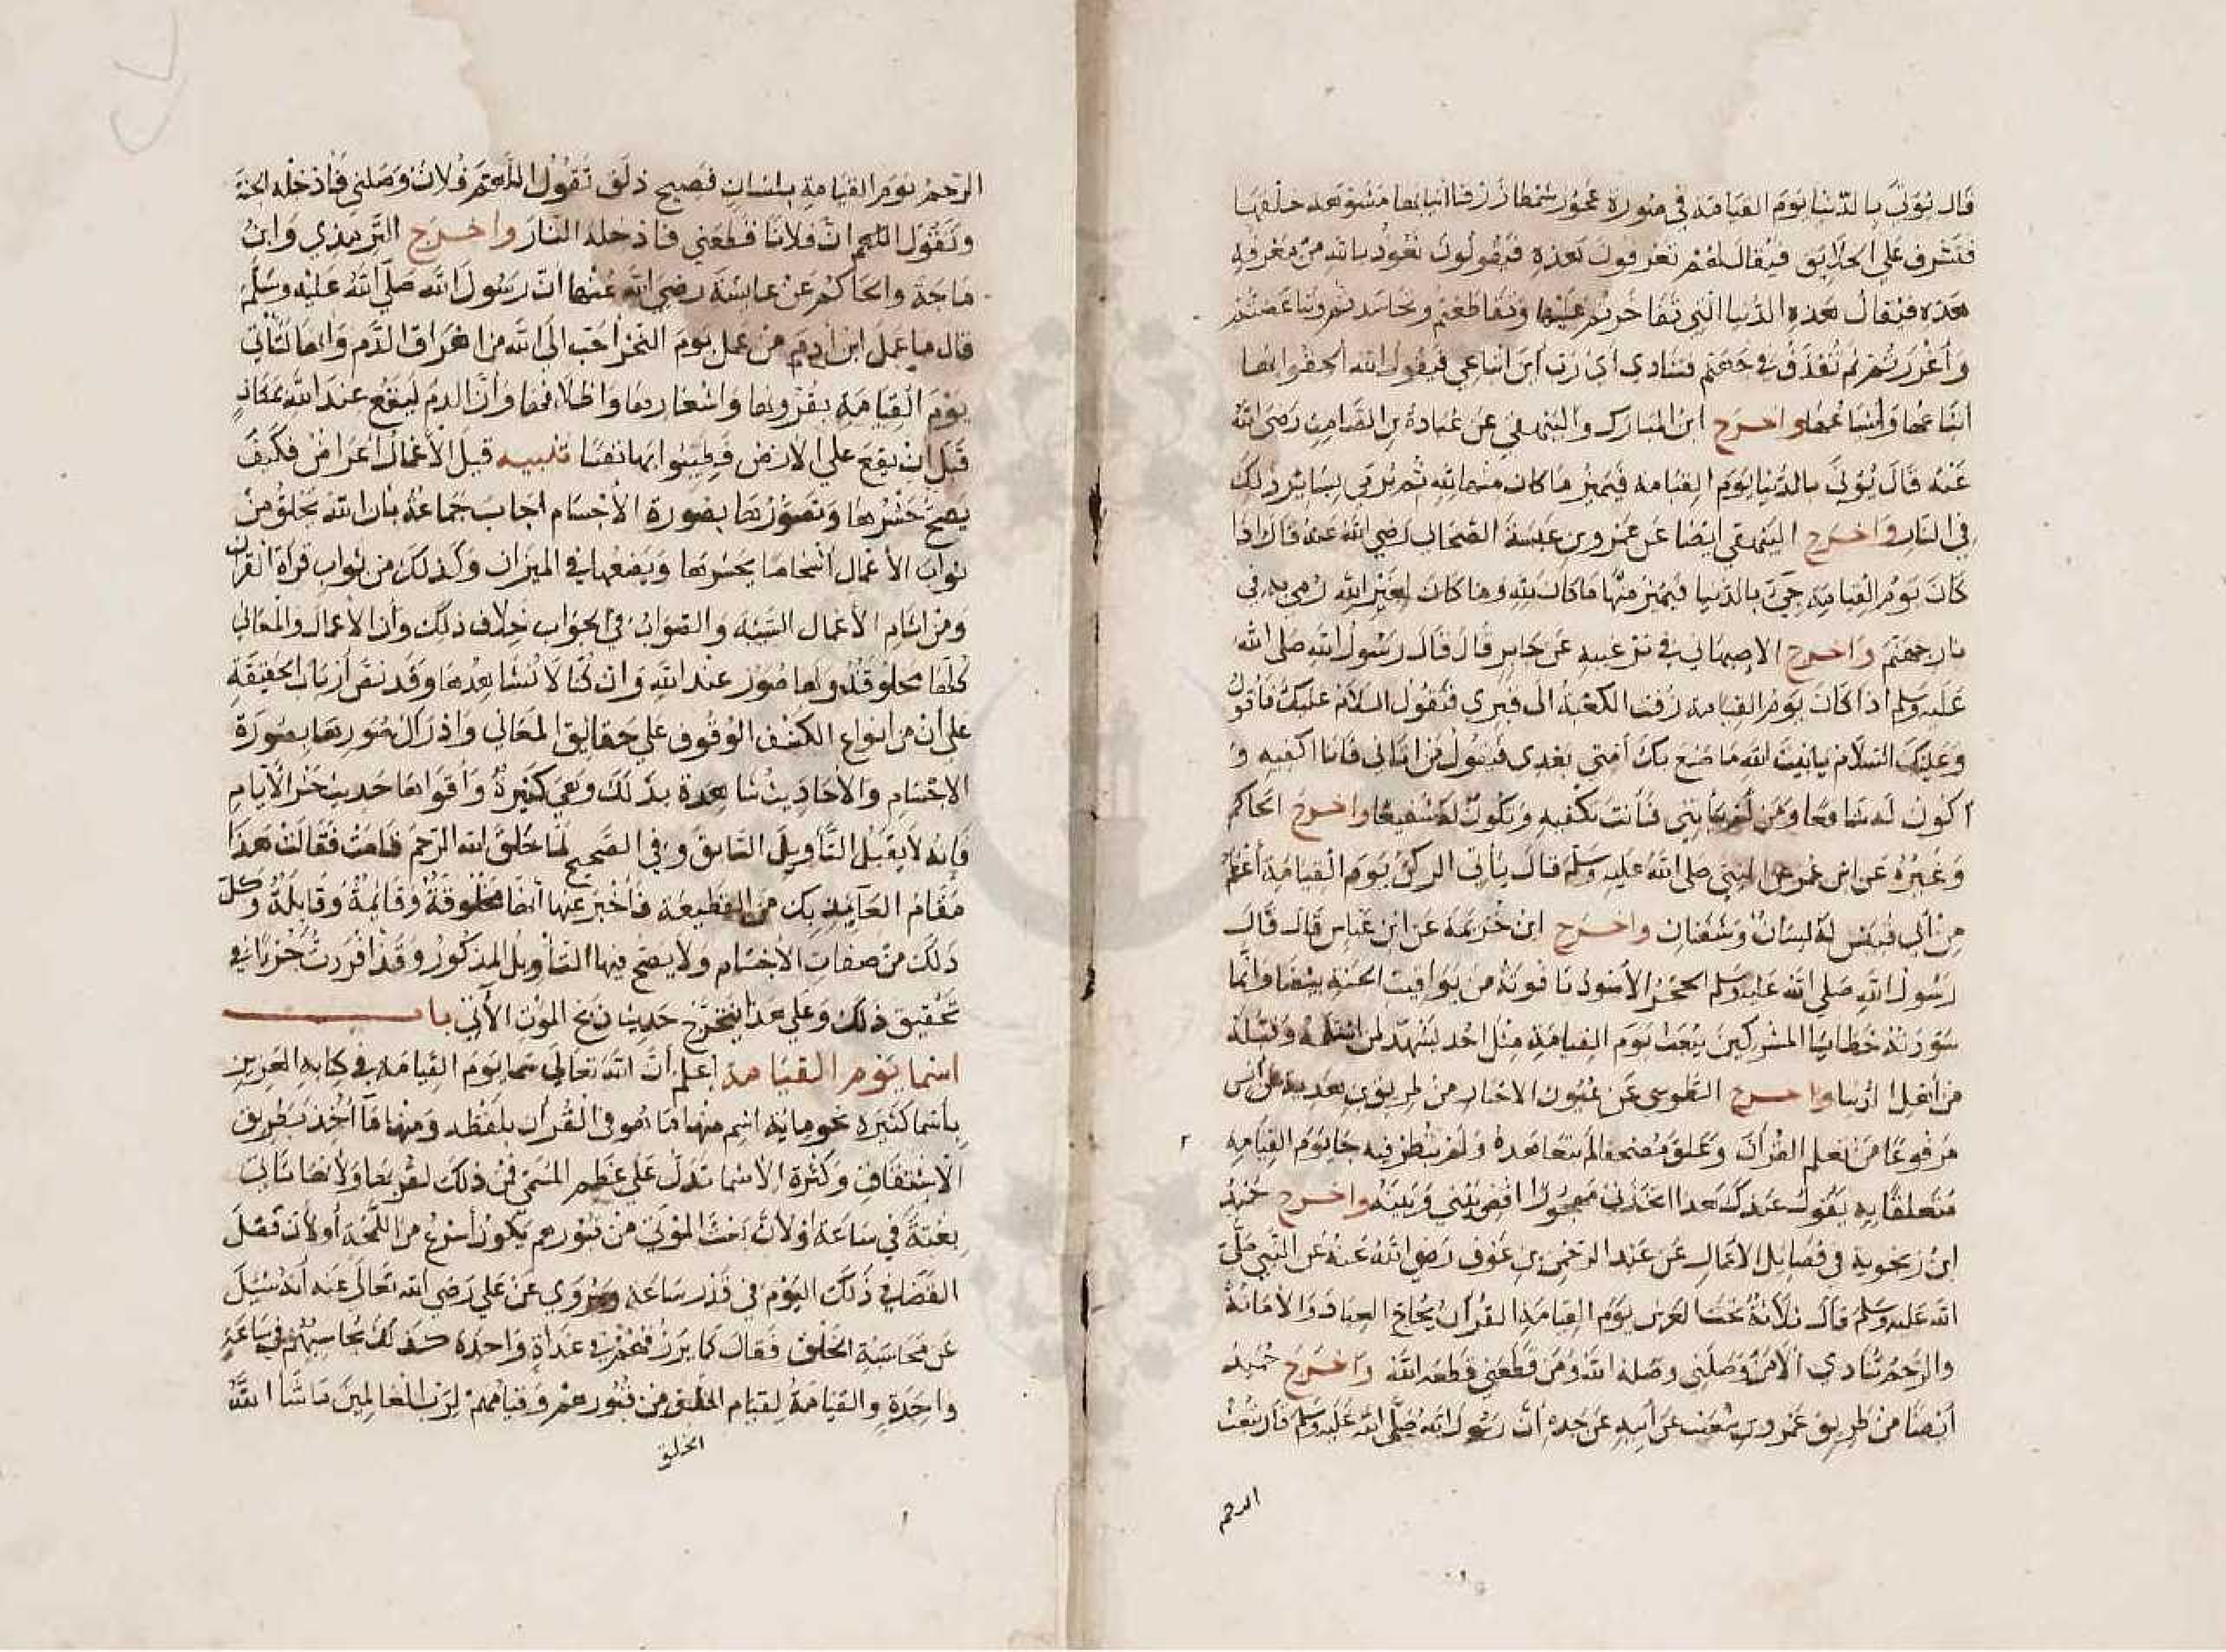 قال يوتي بالدنيا يوم القيامة في صورة عجوز شمطا زرقا انيابها مشوهة خلقها
فتشرف علي الخلايق فيقال لهم تعرفون هذه فيقولون نعوذ بالله من معرفة
هذه فيقال هذه الدنيا التي تفاخرتم عليها وتقاطعتم وتحاسدتم وتباغضتم
واغررتم ثم تقذف في جهنم فتنادي اي رب اين اتباعي فيقول الله الحقوا بها
اتباعها واشياعها واخرج ابن المبارك والبيهقي عن عبادة بن الصامت رضي الله
عنه قال يوتي بالدنيا يوم القيامة فيميز ما كان منها لله ثم يرمي بسائر ذلك
في النار واخرج البيهقي ايضا عن عمرو بن عبسة الصحابي رضي الله عنه قال اذا
كان يوم القيامة جيئ بالدنيا فيميز منها ما كان لله وما كان لغير الله رمي به في
نار جهنم واخرج الاصبهاني في ترغيبه عن جابر قال قال رسول الله صلي الله
عليه وسلم اذا كان يوم القيامة زفت الكعبة الي قبري فتقول السلام عليك فاقول
وعليك السلام يا بيت الله ما صنع بك امتي بعدي فيقول من اتاني فانا اكفيه و
اكون له شافعا ومن لم ياتني فانت تكفيه وتكون له شفيعا واخرج الحاكم
وغيره عن ابن عمرو عن النبي صلي الله عليه وسلم قال ياتي الركن يوم القيامة اعظم
من ابي قبيس له لسان وشفتان واخرج ابن خزيمة عن ابن عباس قال قال
رسول الله صلي الله عليه وسلم الحجر الاسود ياقوتة من يواقيت الجنة بيضا وانما
سودته خطايا المشركين يبعث يوم القيامة مثل احد يشهد لمن استلمه وقبله
من اهل الدنيا واخرج الطوسي عن عيون الاخبار من طريق بن هدبة عن انس
مرفوعا من تعلم القران وعلق مصحفا لم يتعاهده ولم ينظر فيه جا يوم القيامة
متعلقا به يقول عبدك هذا اتخذني مهجورا اقض بيني وبينه واخرج حميد
ابن زنجوية في فضايل الاعمال عن عبد الرحمن بن عوف رضي الله عنه عن النبي صلي
الله عليه وسلم قال ثلاثة تحت العرش يوم القيامة القران يحاج العباد والامانة
والرحم تنادي الا من وصلني وصله الله ومن قطعني قطعه الله واخرج حميد
ايضا من طريق عمرو بن شعيب عن ابيه عن جده ان رسول الله صلي الله عليه وسلم قال تبعث
الرحم
الرحم يوم القيامة بلسان فصيح ذلق تقول اللهم فلان وصلني فادخله الجنة
وتقول اللهم ان فلانا قطعني فادخله النار واخرج الترمذي وابن
ماجة والحاكم عن عايشة رضي الله عنها ان رسول الله صلي الله عليه وسلم
قال ما عمل ابن ادم من عمل يوم النحر احب الي الله من اهراق الدم وانها لتأتي
يوم القيامة بقرونها واشعارها واظلافها وان الدم ليقع عند الله بمكان
قبل ان يقع علي الارض فطيبوا بها نفسا تنبيه قيل الاعمال اعراض فكيف
يصح حشرها وتصورها بصورة الاجسام اجاب جماعة بان الله يخلق من
ثواب الاعمال اشخاصا يحشرها ويضعها في الميزان وكذلك من ثواب قراة القران
ومن اثام الاعمال السيئة والصواب في الجواب خلاف ذلك وان الاعمال والمعاني
كلها مخلوقة ولها صور عند الله وان كنا لا نشاهدها وقد نص ارباب الحقيقة
علي ان من انواع الكشف الوقوف علي حقايق المعاني وادراك صورها بصورة
الاجسام والاحاديث شاهدة بذلك وهي كثيرة واقواها حديث حشر الايام
فانه لا يقبل التاويل السابق وفي الصحيح لما خلق الله الرحم قامت فقالت هذا
مقام العايذ بك من القطيعة فاخبر عنها انها مخلوقة وقايمة وقايلة وكل
ذلك من صفات الاجسام ولا يصح فيها التاويل المذكور وقد افردت جزءا في
تحقيق ذلك وعلي هذا يتخرج حديث ذبح الموت الآتي باب
اسما يوم القيامة اعلم ان الله تعالي سما يوم القيامة في كتابه العزيز
باسما كثيرة نحو ماية اسم منها ما هو في القران بلفظه ومنها ما اخذ بطريق
الاشتقاق وكثرة الاسما تدل علي عظم المسمي فمن ذلك لقربها ولانها تاتي
بغتة في ساعة اولان بعث الموتي من قبورهم يكون اسرع من اللمحة اولان فصل
القضا في ذلك اليوم في قدر ساعة وروي عن علي رضي الله تعالي عنه انه سيل
عن محاسبة الخلق فقال كما يرزقهم في غداة واحدة كذلك يحاسبهم في ساعة
واحدة والقيامة لقيام الخلق من قبورهم وقيامهم لرب العالمين ما شا الله
الخلق